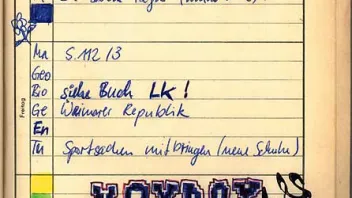 Ma S. 112/3
Geo
Bio siehe Buch LK!
Ge Weimarer Republik
En
Tu Sportsachen mitbringen (neue Schuhe)
Freitag